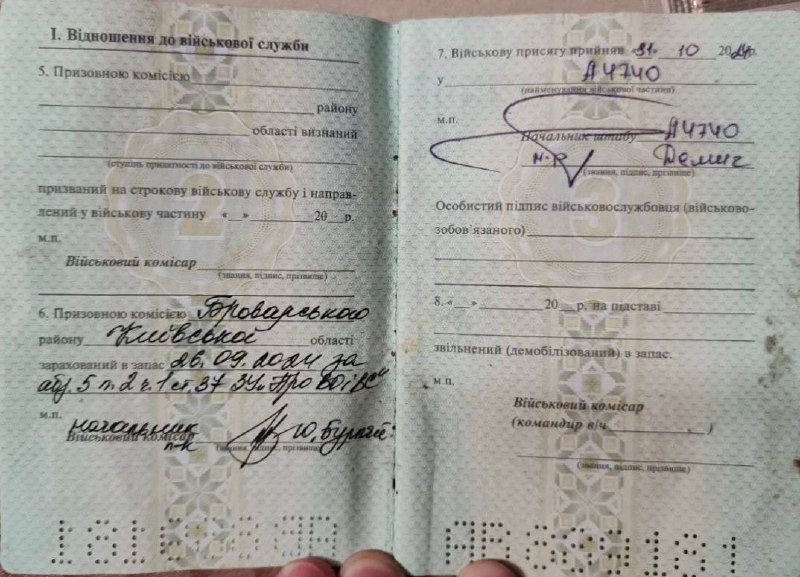 І. Відношення до військової служби
5. Призовною комісією
району
області визнаний
(ступінь придатності до військової служби)
призваний на строкову військову службу і направ-
лений у військову частину « » 20 р.
м.п.
Військовий комісар
(звання, підпис, прізвище)
6. Призовною комісією Броварського
району Київської області
зарахований в запас 26.09.2024 за
абз. 5 п. 2 ч. 1 ст. 37 ЗУ „Про ВО і ВС"
м.п.
начальник
Військовий комісар
п-к Ю.
(звання, підпис, прізвище)
7. Військову присягу прийняв «31» 10 2024р.
у А4740
(найменування військової частини)
м.п.
Начальник штабу А4740
м-р
(звання, підпис, прізвище)
Особистий підпис військовослужбовця (військово-
зобов'язаного)
8. « » 20 р. на підставі
звільнений (демобілізований) в запас.
м.п.
Військовий комісар
(командир в/ч )
(звання, підпис, прізвище)